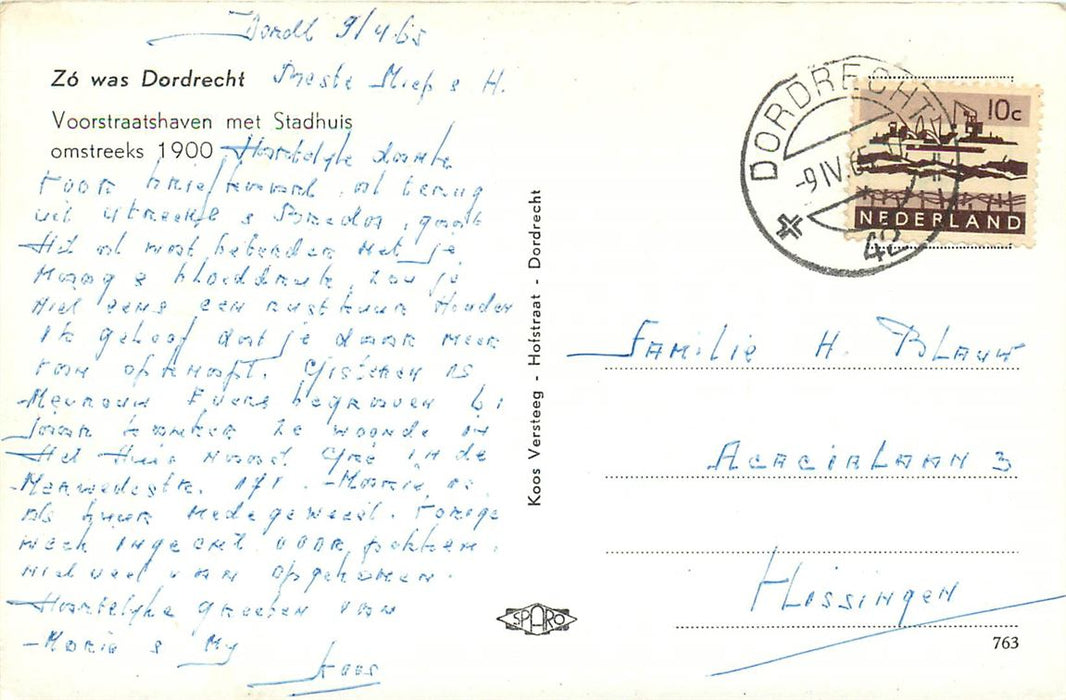 Dordt 9/4 65
Zó was Dordrecht
Beste Miep & H.
Voorstraatshaven met Stadhuis
omstreeks 1900
Hartelyke dank
voor briefkaart, al terug
uit Utrecht & Breda, gaat
Het al wat beter met je
Maag & bloeddruk, zou je
niet eens een rustkuur Houden
Ik geloof dat je daar meer
van opknapt. Gisteren is
Mevrouw Evers begraven 61
jaar kanker ze woonde in
Het Huis naast Gré in de
Merwedestr. 171. Marie is
als buur medegeweest. Vorige
week ingeënt voor pokken,
niet veel van opgekomen.
Hartelyke groeten van
Marie & My
Koos
Koos Versteeg - Hofstraat - Dordrecht
SPARO
DORDRECHT
-9 IV.65
42
10c
NEDERLAND
Familie H. Blauw
Acacialaan 3
Vlissingen
763